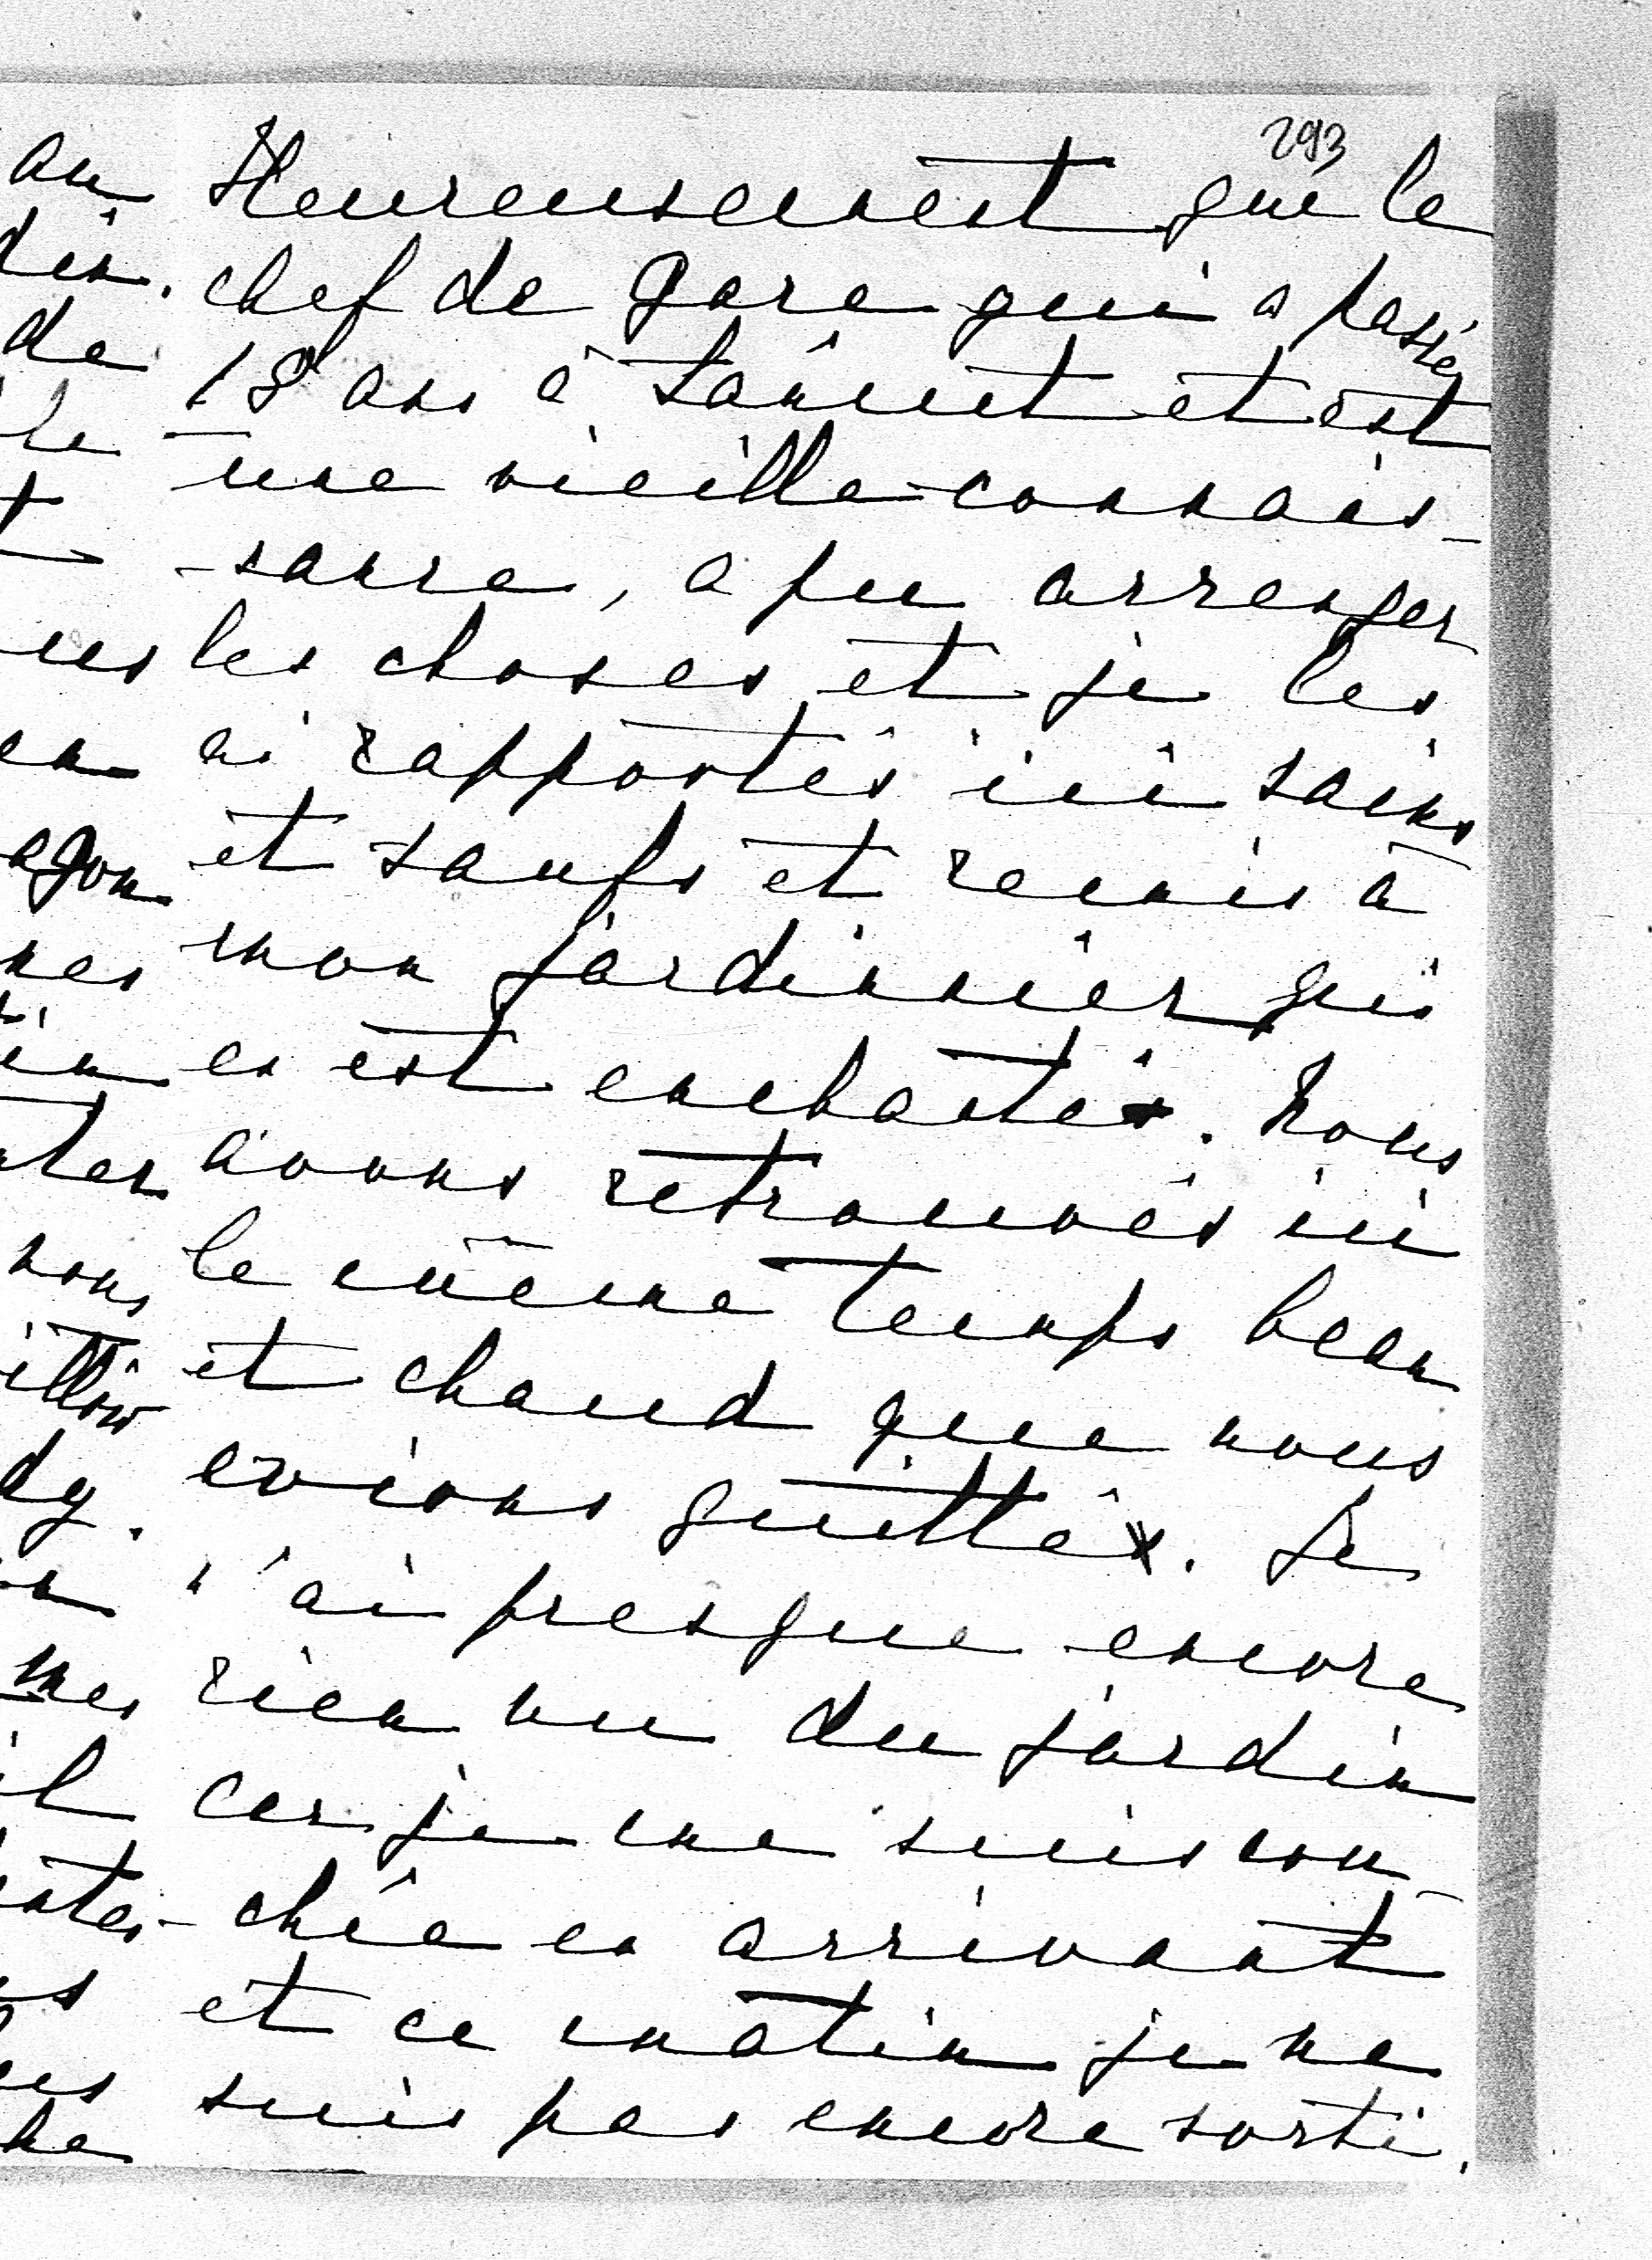 293
Heureusement que le
chef de gare qui a passé
18 ans à et est
une vieille connais-
-sance, a pu arranger
les choses et je les
ai rapportés ici sains
et saufs et remis à
mon jardinnier qui
en est enchanté. Nous
avons retrouvés ici
le même temps beau
et chaud que nous
avions quitté. Je
n'ai presque encore
rien vu du jardin
car je me suis cou-
-chée en arrivant
et ce matin je ne
suis pas encore sortie.